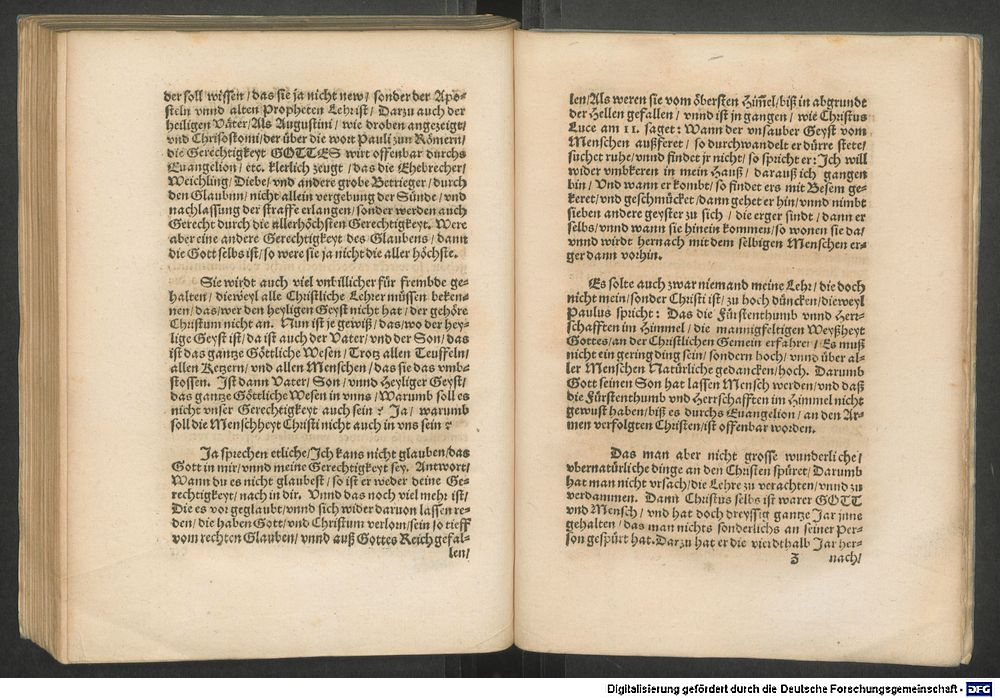 der soll wissen / das sie ja nicht new / sonder der Apo-
steln vnnd alten Propheten Lehr ist / Darzu auch der
heiligen Väter / Als Augustini / wie droben angezeigt /
vnd Chrisostomi / der über die wort Pauli zun Römern /
die Gerechtigkeyt GOTTES wirt offenbar durchs
Euangelion / etc. klerlich zeugt / das die Ehebrecher /
Weichling / Diebe / vnd andere grobe Betrieger / durch
den Glaubnn / nicht allein vergebung der Sünde / vnd
nachlassung der straffe erlangen / sonder werden auch
Gerecht durch die allerhöchsten Gerechtigkeyt. Were
aber eine andere Gerechtigkeyt des Glaubens / dann
die Gott selbs ist / so were sie ja nicht die aller höchste.
Sie wirdt auch viel vnbillicher für frembde ge-
halten / dieweyl alle Christliche Lehrer müssen beken-
nen / das / wer den heyligen Geyst nicht hat / der gehöre
Christum nicht an. Nun ist je gewiß / das / wo der hey-
lige Geyst ist / da ist auch der Vater / vnd der Son / das
ist das gantze Göttliche Wesen / Trotz allen Teuffeln /
allen Ketzern / vnd allen Menschen / das sie das vmb-
stossen. Ist dann Vater / Son / vnnd Heyliger Geyst /
das gantze Göttliche Wesen in vnns / Warumb soll es
nicht vnser Gerechtigkeyt auch sein? Ja / warumb
soll die Menschheyt Christi nicht auch in vns sein?
Ja sprechen etliche / Ich kans nicht glauben / das
Gott in mir / vnnd meine Gerechtigkeyt sey. Antwort /
Wann du es nicht glaubest / so ist er weder deine Ge-
rechtigkeyt / nach in dir. Vnnd das noch viel mehr ist /
Die es vor geglaubt / vnnd sich wider daruon lassen re-
den / die haben Gott / vnd Christum verlorn / sein so tieff
vom rechten Glauben / vnnd auß Gottes Reich gefal-
len /
len / Als weren sie vom öbersten Him̃el / biß in abgrundt
der Hellen gefallen / vnnd ist jn gangen / wie Christus
Luce am 11. saget: Wann der vnsauber Geyst vom
Menschen außferet / so durchwandelt er dürre stete /
suchet ruhe / vnnd findet jr nicht / so spricht er: Ich will
wider vmbkeren in mein Hauß / darauß ich gangen
bin / Vnd wann er kombt / so findet ers mit Besem ge-
keret / vnd geschmücket / dann gehet er hin / vnnd nimbt
sieben andere geyster zu sich / die erger sindt / dann er
selbs / vnnd wann sie hinein kommen / so wonen sie da /
vnnd wirdt hernach mit dem selbigen Menschen er-
ger dann vorhin.
Es solte auch zwar niemand meine Lehr / die doch
nicht mein / sonder Christi ist / zu hoch düncken / dieweyl
Paulus spricht: Das die Fürstenthumb vnnd Herr-
schafften im Himmel / die mannigfeltigen Weyßheyt
Gottes / an der Christlichen Gemein erfahren / Es muß
nicht ein gering ding sein / sondern hoch / vnnd über al-
ler Menschen Natürliche gedancken / hoch. Darumb
Gott seinen Son hat lassen Mensch werden / vnd daß
die Fürstenthumb vnd Herrschafften im Himmel nicht
gewust haben / biß es durchs Euangelion / an den Ar-
men verfolgten Christen / ist offenbar worden.
Das man aber nicht grosse wunderliche /
vbernatürliche dinge an den Christen spüret / Darumb
hat man nicht vrsach / die Lehre zu verachten / vnnd zu
verdammen. Dann Christus selbs ist warer GOTT
vnd Mensch / vnd hat doch dreyssig gantze Jar jnne
gehalten / das man nichts sonderlichs an seiner Per-
son gespürt hat. Darzu hat er die vierdthalb Jar her-
Z nach /
Digitalisierung gefördert durch die Deutsche Forschungsgemeinschaft - DFG